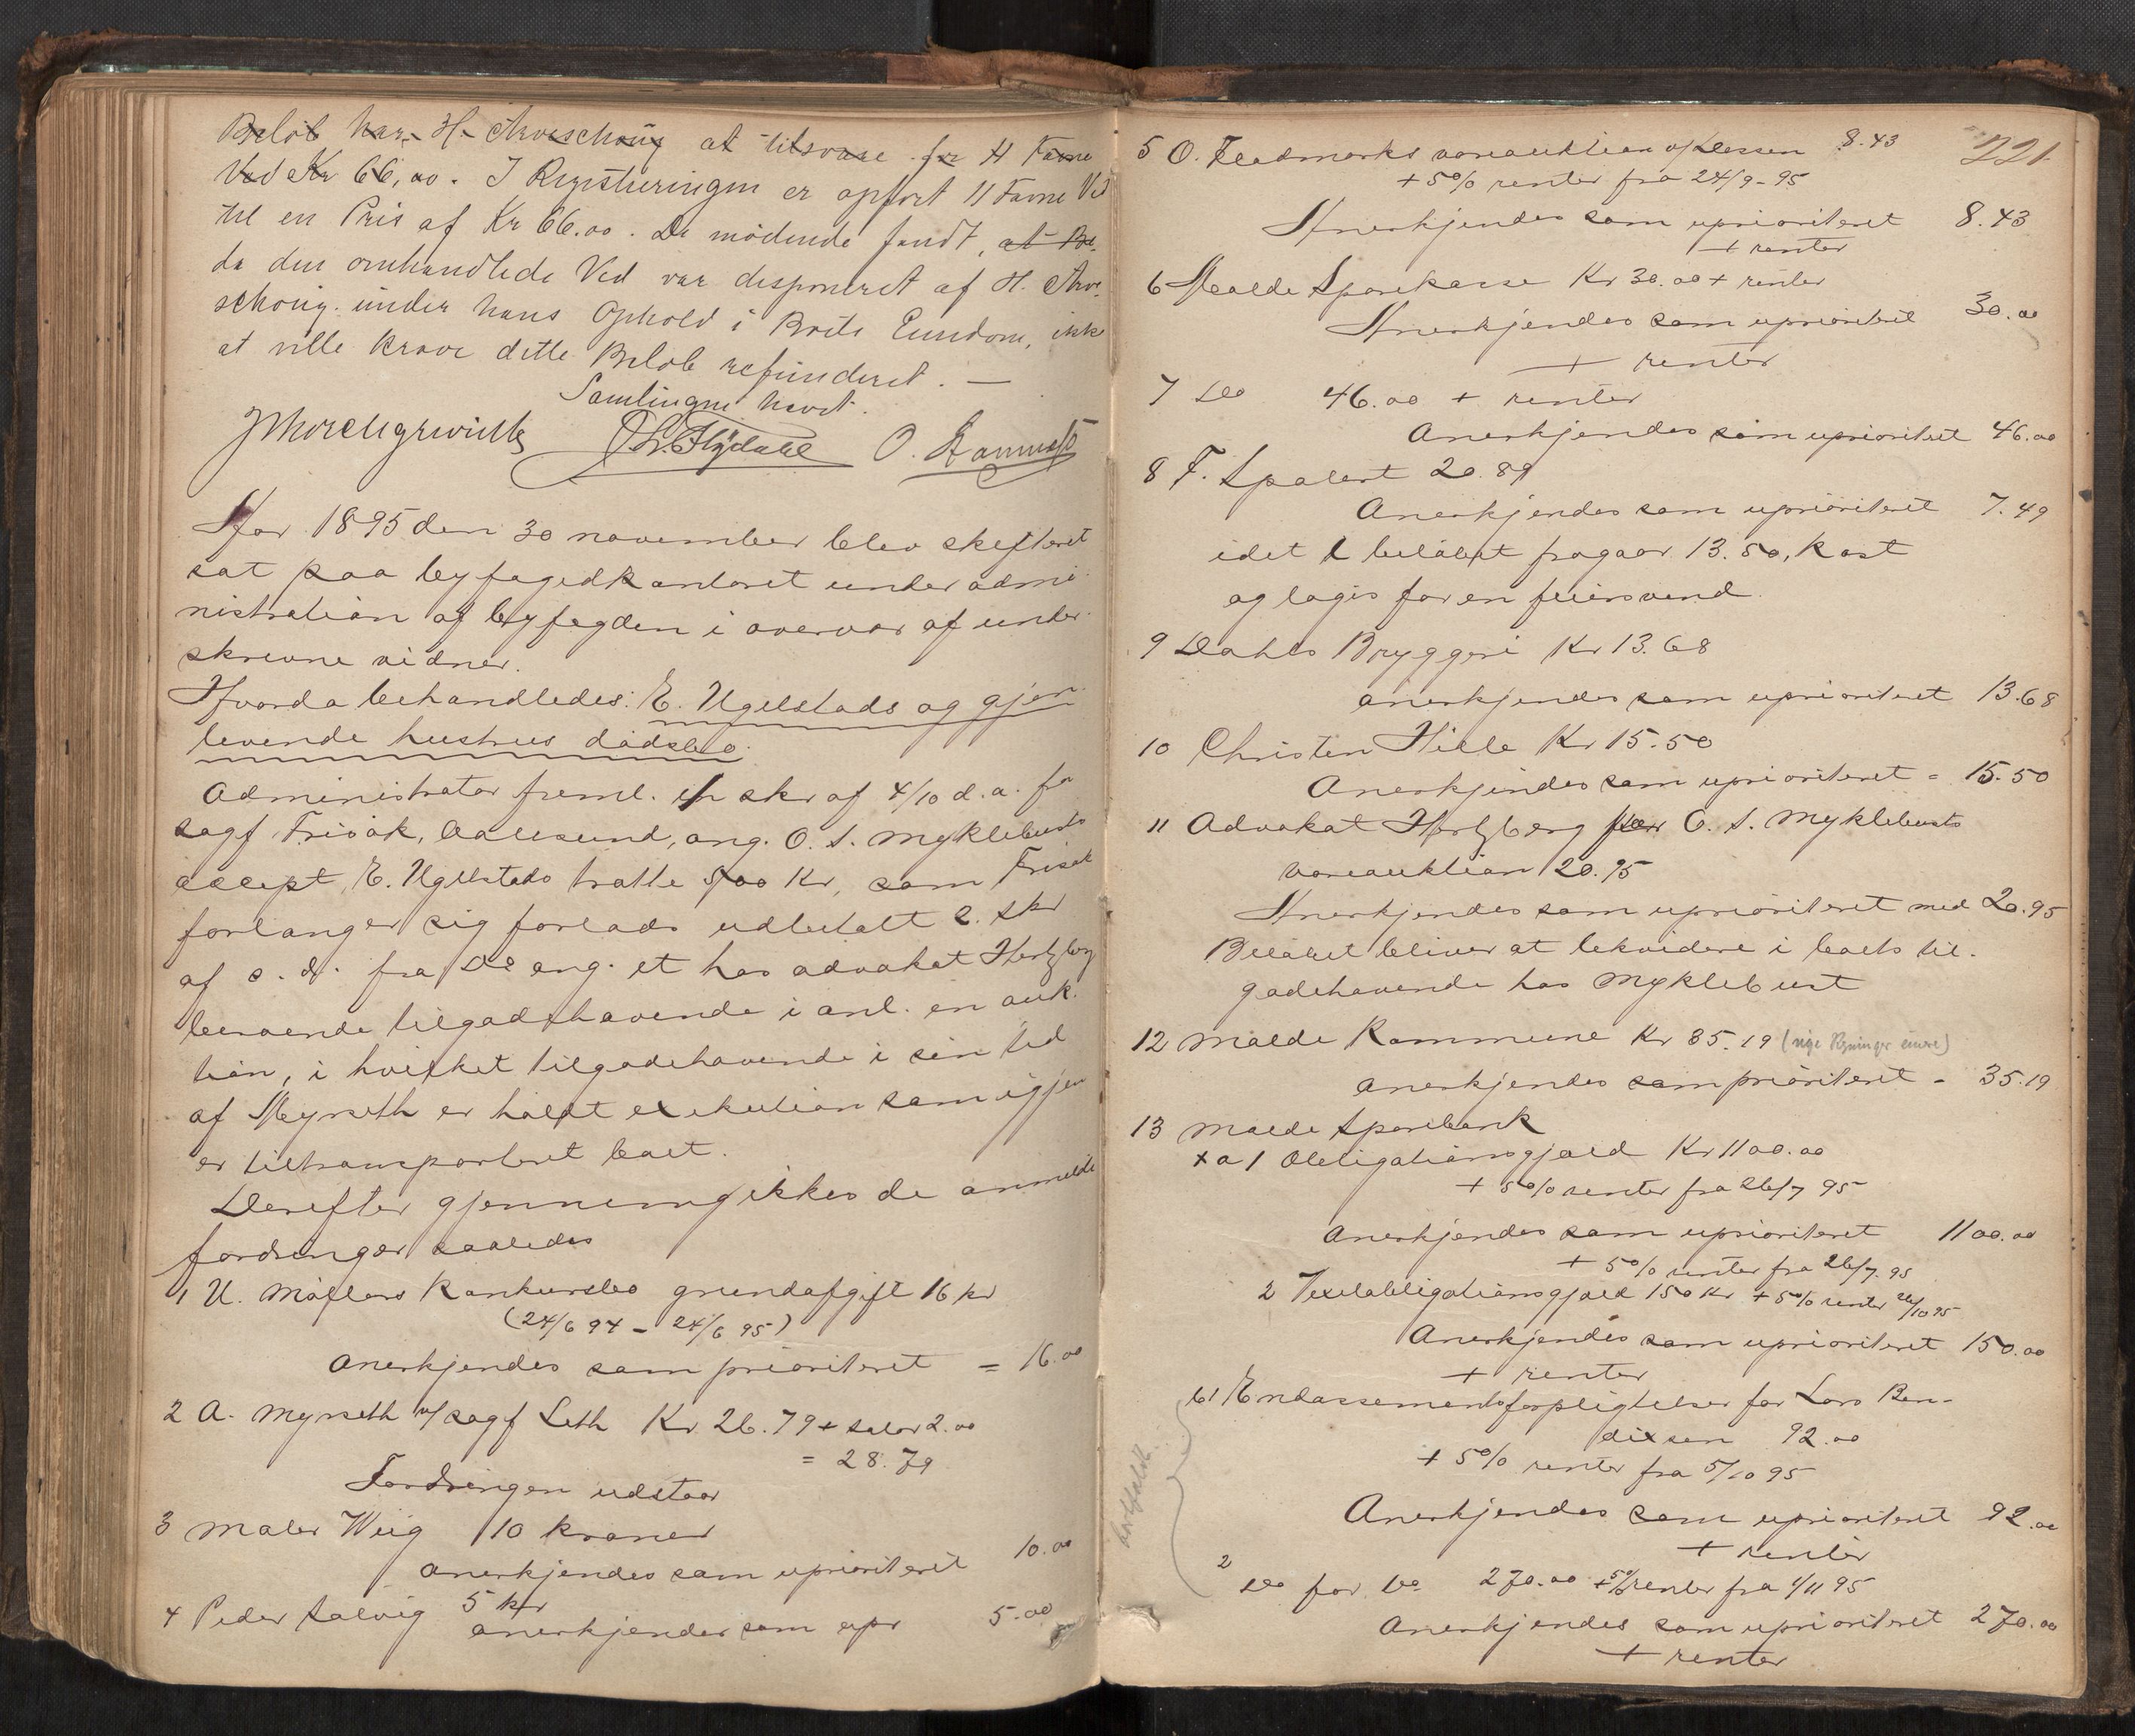 Beløb har H. Aarseth at tilsvare for 11 Favne
Ved Kr 66,00. I Registreringen er opført 11 Favne Ved
til en Pris af Kr 66.00. De mödende fandt, at Be-
da den omhandlede Ved var disponeret af H.
under hans Ophold i Boets Eiendom, ikke
at ville kræve dette Beløb refunderet. —
Samlingen hævet.
O.
Aar 1895 den 30 november blev skifteret
sat paa byfogedkontoret under admi-
nistration af byfogden i overvær af under-
skrevne vidner.
Hvorda behandledes: E. Ugelstads og gjen-
levende hustrus dødsbo.
Administrator freml. en skr af 4/10 d.a. fra
sagf Frisak, Aalesund, ang. O. S. Myklebusts
accept, E. Ugelstads tratte 500 Kr, som Frisak
forlanger sig forlods udbetalt 2. skr
af s. d. fra Do ang. et hos advokat Hertzberg
beroende tilgodehavende i anl. en auk-
tion, i hvilket tilgodehavende i sin tid
af Myrseth er holdt exekution som igjen
er tiltransporteret boet.
Derefter gjennemgikkes de anmeldte
fordringer saaledes
1 U. Møllers Konkursbo grundafgift 16 kr
(24/6 94 - 24/6 95)
Anerkjendes som prioriteret = 16.00
2 A. Myrseth v/ sagf Leth Kr 26.79 + salær 2.00
= 28.79
Fordringen udstaar
3 Maler Wiig 10 kroner
Anerkjendes som uprioriteret 10.00
4 Peder Salvig 5 kr
anerkjendes som upr 5.00
221.
5 O. vareauktion v/ 8.43
+ 5% renter fra 24/9-95
Anerkjendes som uprioriteret 8.43
+ renter
6 Molde Sparekasse Kr 30.00 + renter
Anerkjendes som uprioriteret 30.00
+ renter
7 Do 46.00 + renter
Anerkjendes som uprioriteret 46.00
8 F. Spalert 20.89
Anerkjendes som uprioriteret 7.49
idet beløbet fragaar 13.50, kost
og logis for en feiersvend
9 Dahls Bryggeri Kr 13.68
anerkjendes som uprioriteret 13.68
10 Christen Hille Kr 15.50
Anerkjendes som uprioriteret = 15.50
11 Advokat Hertzberg for O. S. Myklebusts
vareauktion 20.95
Anerkjendes som uprioriteret med 20.95
Beløbet bliver at likvidere i boets til-
godehavende hos Myklebust
12 Molde Kommune Kr 35.19
anerkjendes som prioriteret - 35.19
13 Molde Sparebank
+ a 1 Obligationsgjæld Kr 1100.00
+ 5% renter fra 26/7 95
Anerkjendes som uprioriteret 1100.00
+ 5% renter fra 26/7. 95
2 Vexelobligationsgjæld 150 Kr + 5% renter 26/10 95
Anerkjendes som uprioriteret 150.00
+ renter
b 1 Endossementsforpligtelser for Lars Ben-
dixsen 92.00
+ 5% renter fra 5/10 95
Anerkjendes som uprioriteret 92.00
+ renter
bortfaldt
2 Do for Do 270.00 + 5% renter fra 1/11 95
Anerkjendes som uprioriteret 270.00
+ renter